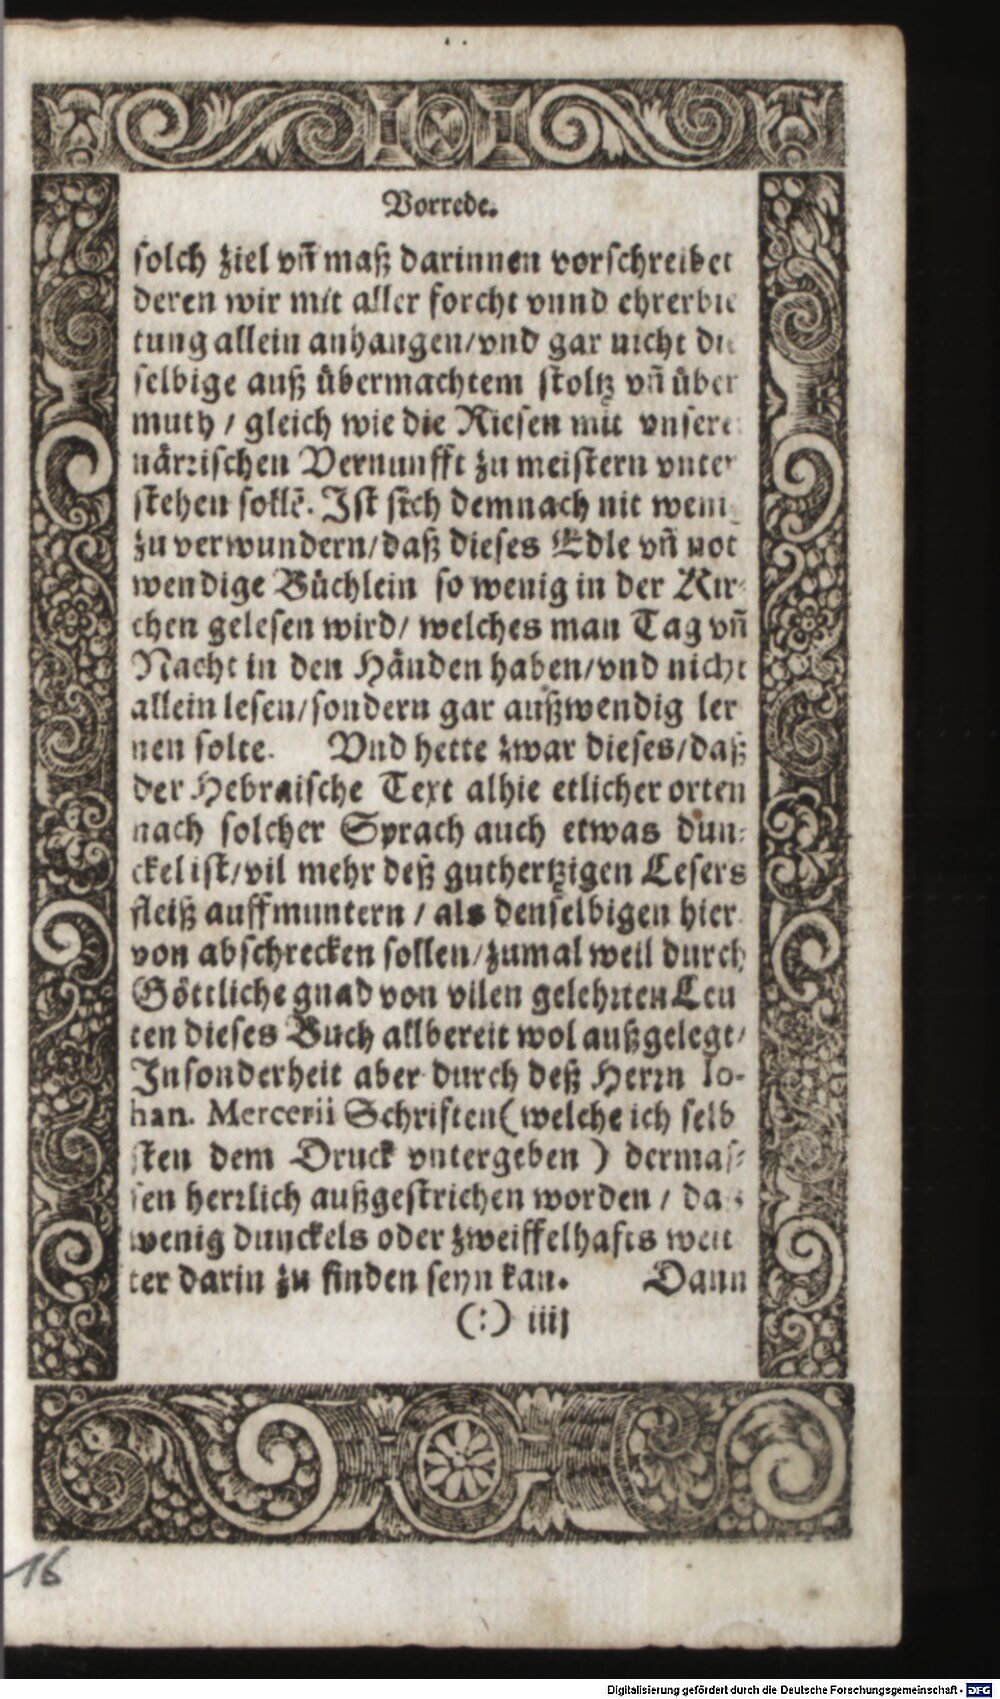 Vorrede.
solch ziel vn̄ maß darinnen vorschreibet
deren wir mit aller forcht vnnd ehrerbie
tung allein anhangen/vnd gar nicht die
selbige auß übermachtem stoltz vn̄ über
muth / gleich wie die Riesen mit vnsere
närrischen Vernunfft zu meistern vnter
stehen sollē. Ist sich demnach nit wenig
zu verwundern/daß dieses Edle vn̄ not
wendige Büchlein so wenig in der Kir-
chen gelesen wird/ welches man Tag vn̄
Nacht in den Händen haben/vnd nicht
allein lesen/sondern gar außwendig ler
nen solte. Vnd hette zwar dieses/daß
der Hebraische Text alhie etlicher orten
nach solcher Sprach auch etwas dun-
ckel ist/vil mehr deß guthertzigen Lesers
fleiß auffmuntern / als denselbigen hier
von abschrecken sollen/zumal weil durch
Göttliche gnad von vilen gelehrten Leu
ten dieses Buch allbereit wol außgelegt/
Insonderheit aber durch deß Herrn Io-
han. Mercerii Schriften (welche ich selb
sten dem Druck vntergeben) dermas-
sen herrlich außgestrichen worden / das
wenig dunckels oder zweiffelhafts weit
ter darin zu finden seyn kan. Dann
(:) iiij
16
Digitalisierung gefördert durch die Deutsche Forschungsgemeinschaft - DFG